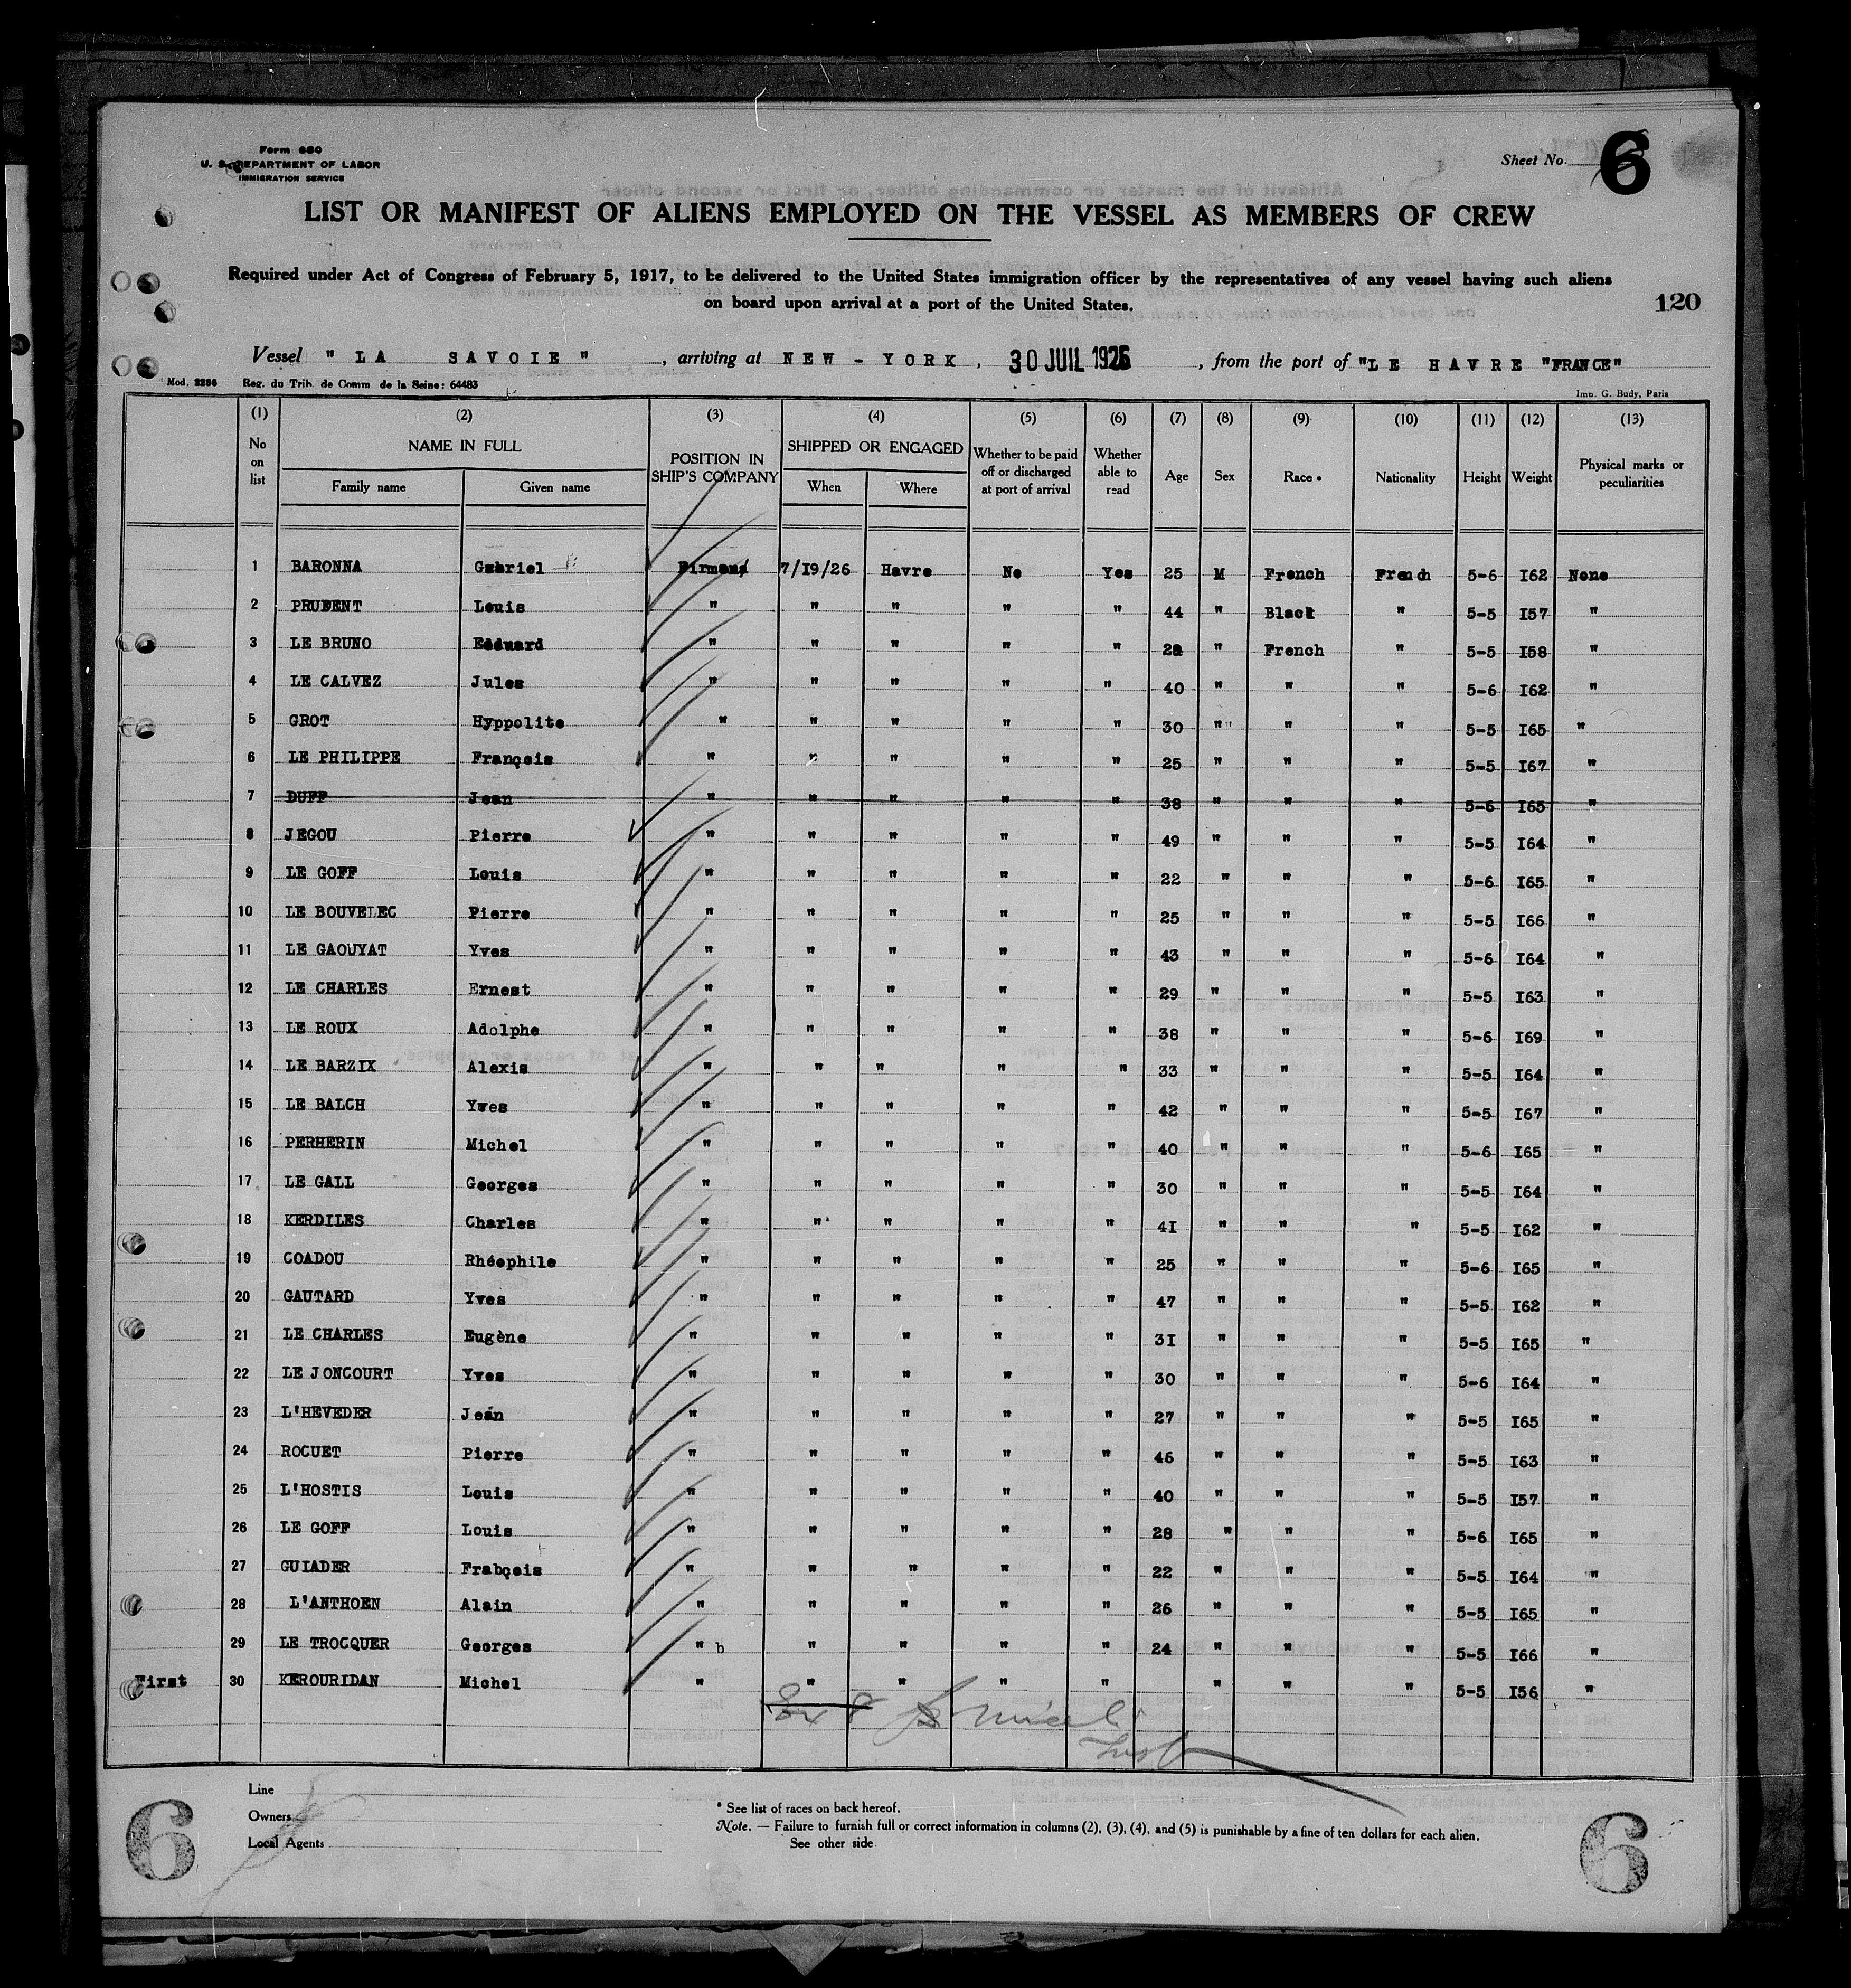 Form 680
U. S. DEPARTMENT OF LABOR
IMMIGRATION SERVICE
Sheet No. 6
LIST OR MANIFEST OF ALIENS EMPLOYED ON THE VESSEL AS MEMBERS OF CREW
Required under Act of Congress of February 5, 1917, to be delivered to the United States immigration officer by the representatives of any vessel having such aliens
on board upon arrival at a port of the United States.
120
Vessel " LA SAVOIE " , arriving at NEW - YORK , 30 JUIL 1926 , from the port of "LE HAVRE "FRANCE"
Mod. 2286 Reg. du Trib. de Comm de la Seine: 64483 Imp. G. Budy, Paris
(1) (2) (3) (4) (5) (6) (7) (8) (9) (10) (11) (12) (13)
No on list NAME IN FULL Family name Given name POSITION IN SHIP'S COMPANY SHIPPED OR ENGAGED When Where Whether to be paid off or discharged at port of arrival Whether able to read Age Sex Race * Nationality Height Weight Physical marks or peculiarities
1 BARONNA Gabriel Firmens 7/19/26 Havre No Yes 25 M French French 5-6 I62 None
2 PRUDENT Louis " " " " " 44 " Black " 5-5 I57 "
3 LE BRUNO Edouard " " " " " 28 " French " 5-5 I58 "
4 LE CALVEZ Jules " " " " " 40 " " " 5-6 I62 "
5 GROT Hyppolite " " " " " 30 " " " 5-5 I65 "
6 LE PHILIPPE François " " " " " 25 " " " 5-5 I67 "
7 DUFF Jean " " " " " 38 " " " 5-6 I65 "
8 JEGOU Pierre " " " " " 49 " " " 5-5 I64 "
9 LE GOFF Louis " " " " " 22 " " " 5-6 I65 "
10 LE BOUVELEC Pierre " " " " " 25 " " " 5-5 I66 "
11 LE GAOUYAT Yves " " " " " 43 " " " 5-6 I64 "
12 LE CHARLES Ernest " " " " " 29 " " " 5-5 I63 "
13 LE ROUX Adolphe " " " " " 38 " " " 5-6 I69 "
14 LE BARZIX Alexis " " " " " 33 " " " 5-5 I64 "
15 LE BALCH Yves " " " " " 42 " " " 5-5 I67 "
16 PERHERIN Michel " " " " " 40 " " " 5-6 I65 "
17 LE GALL Georges " " " " " 30 " " " 5-5 I64 "
18 KERDILES Charles " " " " " 4I " " " 5-5 I62 "
19 COADOU Rhéophile " " " " " 25 " " " 5-6 I65 "
20 GAUTARD Yves " " " " " 47 " " " 5-5 I62 "
21 LE CHARLES Eugène " " " " " 3I " " " 5-5 I65 "
22 LE JONCOURT Yves " " " " " 30 " " " 5-6 I64 "
23 L'HEVEDER Jean " " " " " 27 " " " 5-5 I65 "
24 ROCUET Pierre " " " " " 46 " " " 5-5 I63 "
25 L'HOSTIS Louis " " " " " 40 " " " 5-5 I57 "
26 LE GOFF Louis " " " " " 28 " " " 5-6 I65 "
27 GUIADER Frabçois " " " " " 22 " " " 5-5 I64 "
28 L'ANTHOEN Alain " " " " " 26 " " " 5-5 I65 "
29 LE TROCQUER Georges " b " " " " 24 " " " 5-5 I66 "
First 30 KEROURIDAN Michel " " " " " " " " 5-5 I56 "
Line
Owners
Local Agents
* See list of races on back hereof.
Note. — Failure to furnish full or correct information in columns (2), (3), (4), and (5) is punishable by a fine of ten dollars for each alien.
See other side
6 6